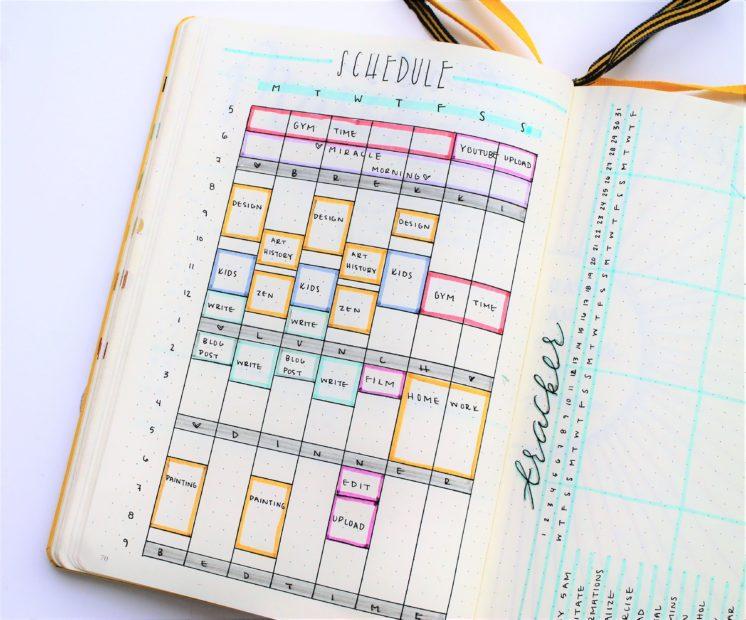 SCHEDULE
M T W T F S S
5
GYM TIME
6
YOUTUBE UPLOAD
♡ MIRACLE
MORNING ♡
7
♡ B R E K K I
8
DESIGN DESIGN DESIGN
9
ART HISTORY ART HISTORY
10
KIDS KIDS KIDS
11
ZEN ZEN GYM TIME
12
WRITE WRITE
1
♡ L U N C H ♡
2
BLOG POST WRITE BLOG POST WRITE FILM HOME WORK
3
4
♡ D I N N E R
5
6
PAINTING PAINTING EDIT
7
UPLOAD
8
9
B E D T I M E
70
tracker
1 2 3 4 5 6 7 8 9 10 11 12 13 14 15 16 17 18 19 20 21 22 23 24 25 26 27 28 29 30 31
W T F S S M T W T F S S M T W T F S S M T W T F S S M T W T F
Y 5 AM
ITATE
RMATIONS
ALIZE
RCISE
AD
AL
MINS
HOL
AR